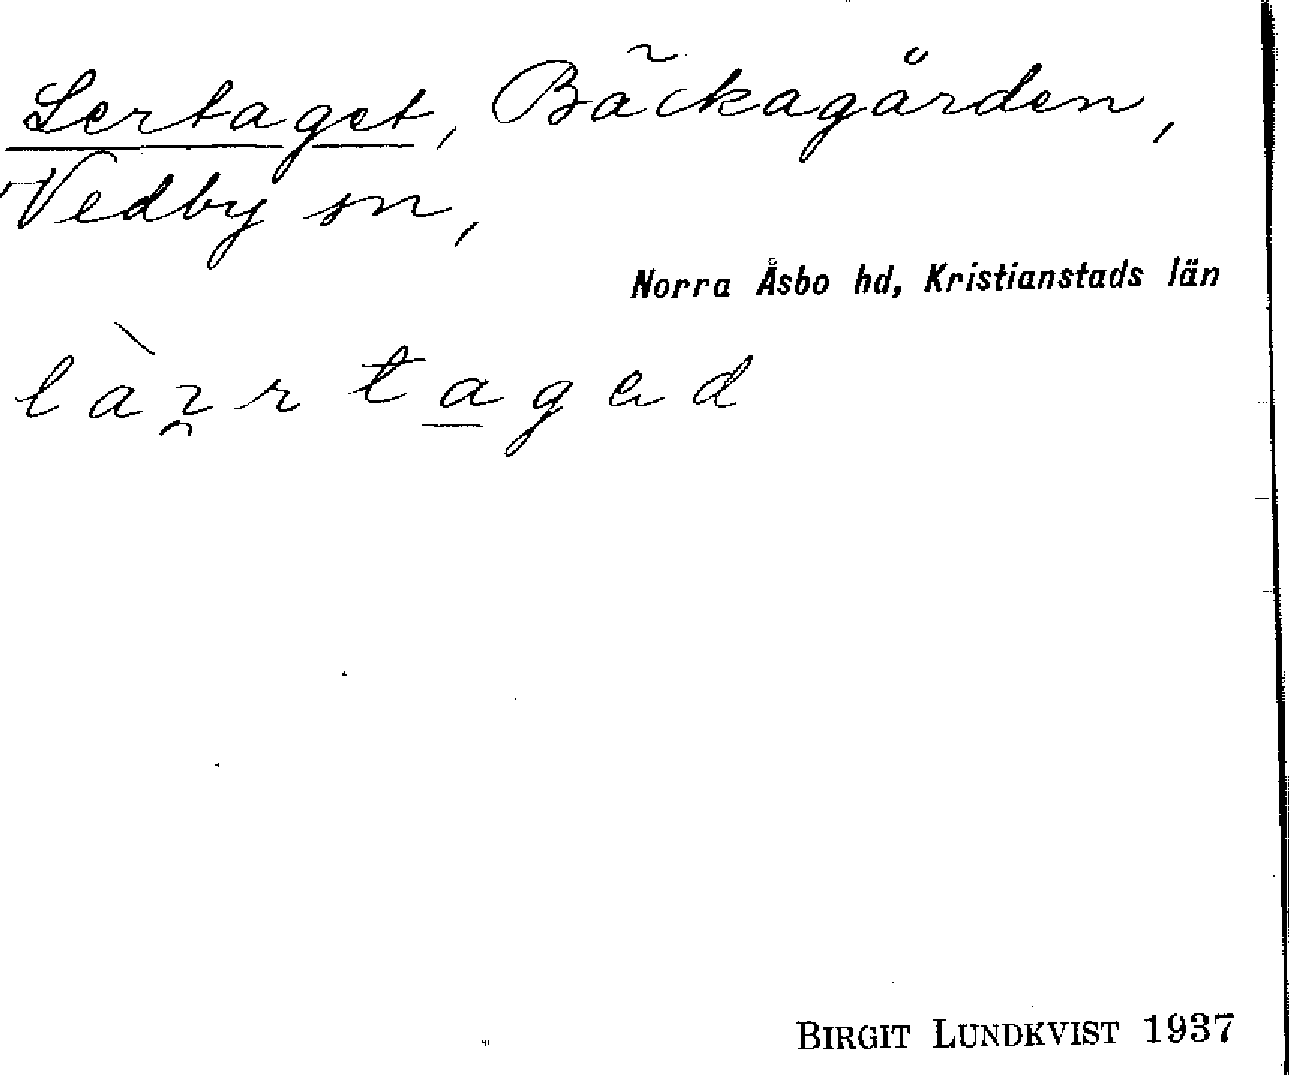 Lertaget, Bäckagården,
Vedby sn,
Norra Åsbo hd, Kristianstads län
BIRGIT LUNDKVIST 1937